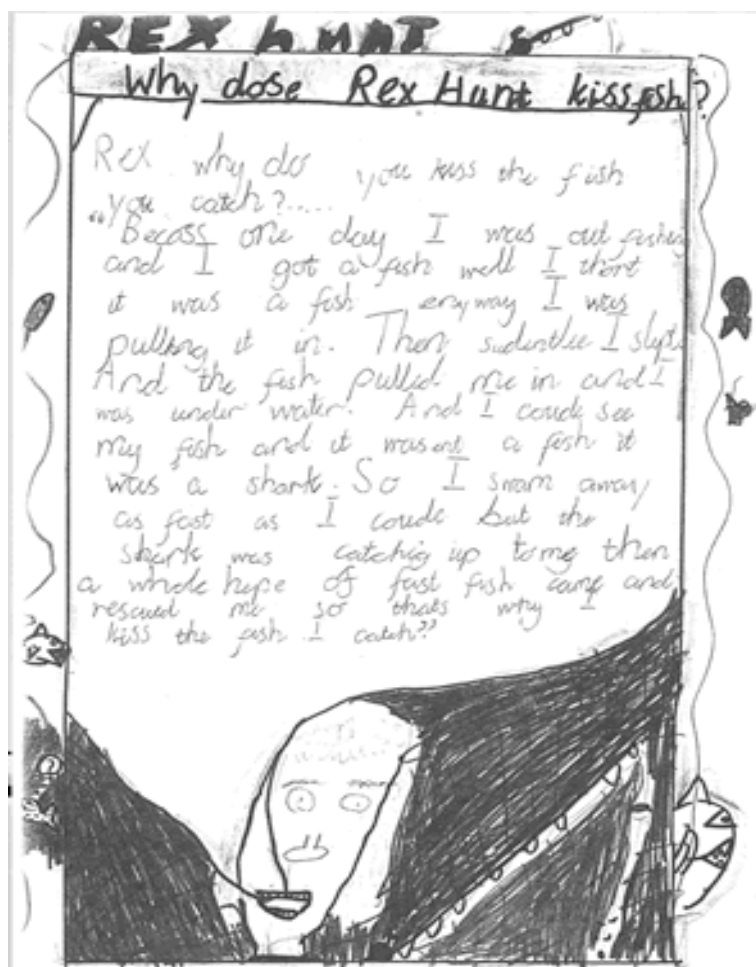 REX hunt
Why dose Rex Hunt kiss fish?
Rex why do you kiss the fish
you catch?.....
"Becoss one day I was out fishing
and I got a fish well I thort
it was a fish enyway I was
pulling it in. Then sudentlee I slipt.
And the fish pulled me in and I
was under water. And I coude see
my fish and it wasent a fish it
was a shark. So I swam away
as fast as I coude but the
shark was catching up to me then
a whole hepe of fast fish came and
rescued me so thats why I
kiss the fish I catch?"